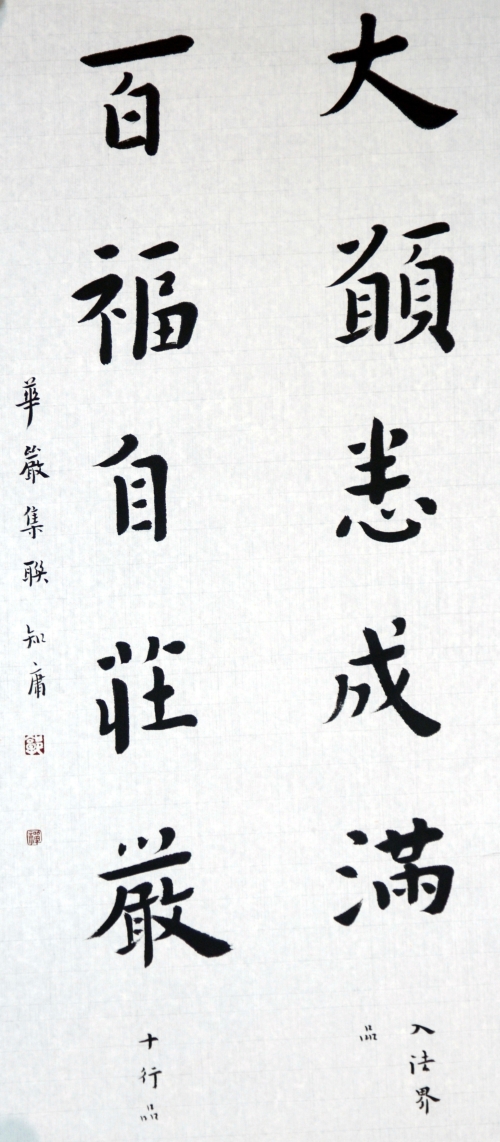 大願悉成滿
入法界
品
百福自莊嚴
十行品
華嚴集聯 知庸